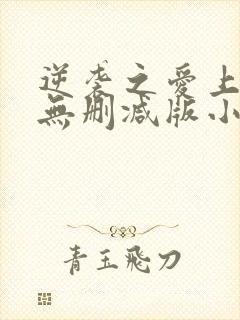 逆袭之愛上
無删減版小
青玉飛刀